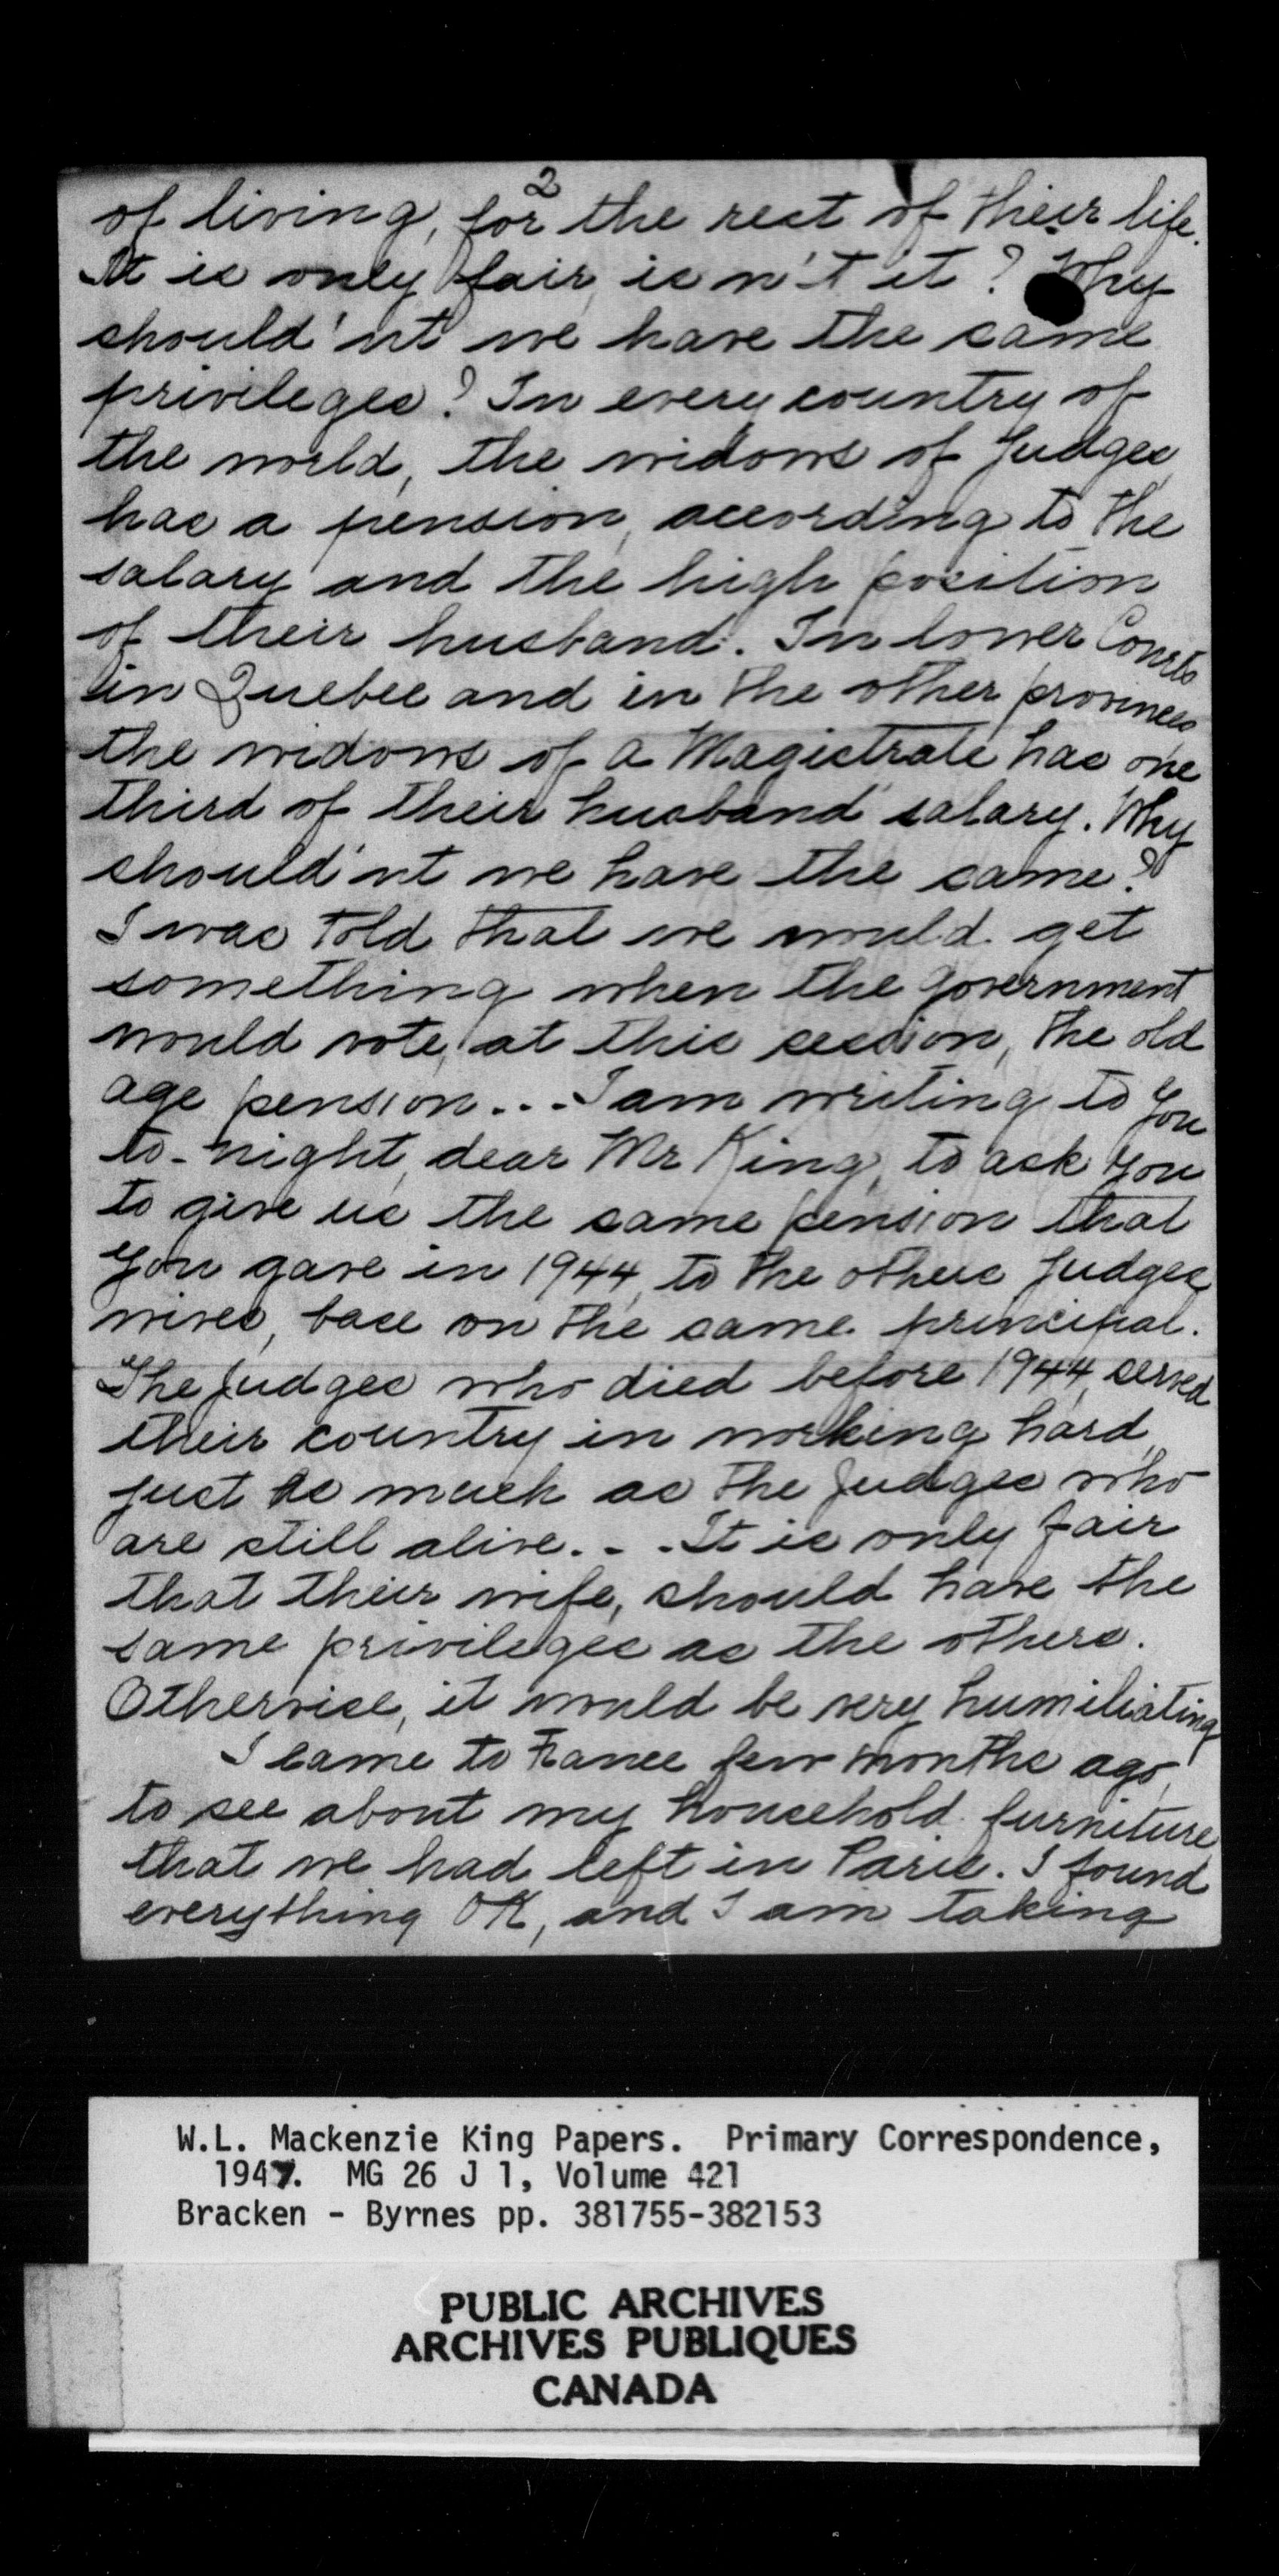 2
of living, for the rest of their life.
It is only fair, is n't it? Why
should'nt we have the same
privileges? In every country of
the world, the widows of Judges
has a pension, according to the
salary and the high position
of their husband. In lower Courts
in Quebec and in the other provinces
the widows of a Magistrate has one
third of their husband salary. Why
should'nt we have the same?
I was told that we would get
something when the government
would vote, at this session, the old
age pension... I am writing to you
to-night, dear Mr King, to ask you
to give us the same pension that
you gave in 1944, to the others Judges
wives, base on the same principal.
The Judges who died before 1944, served
their country in working hard,
just as much as the Judges who
are still alive... It is only fair
that their wife, should have the
same privileges as the others.
Otherwise, it would be very humiliating
I came to France few months ago,
to see about my household furniture
that we had left in Paris. I found
everything OK, and I am taking
W.L. Mackenzie King Papers. Primary Correspondence,
1947. MG 26 J 1, Volume 421
Bracken - Byrnes pp. 381755-382153
PUBLIC ARCHIVES
ARCHIVES PUBLIQUES
CANADA